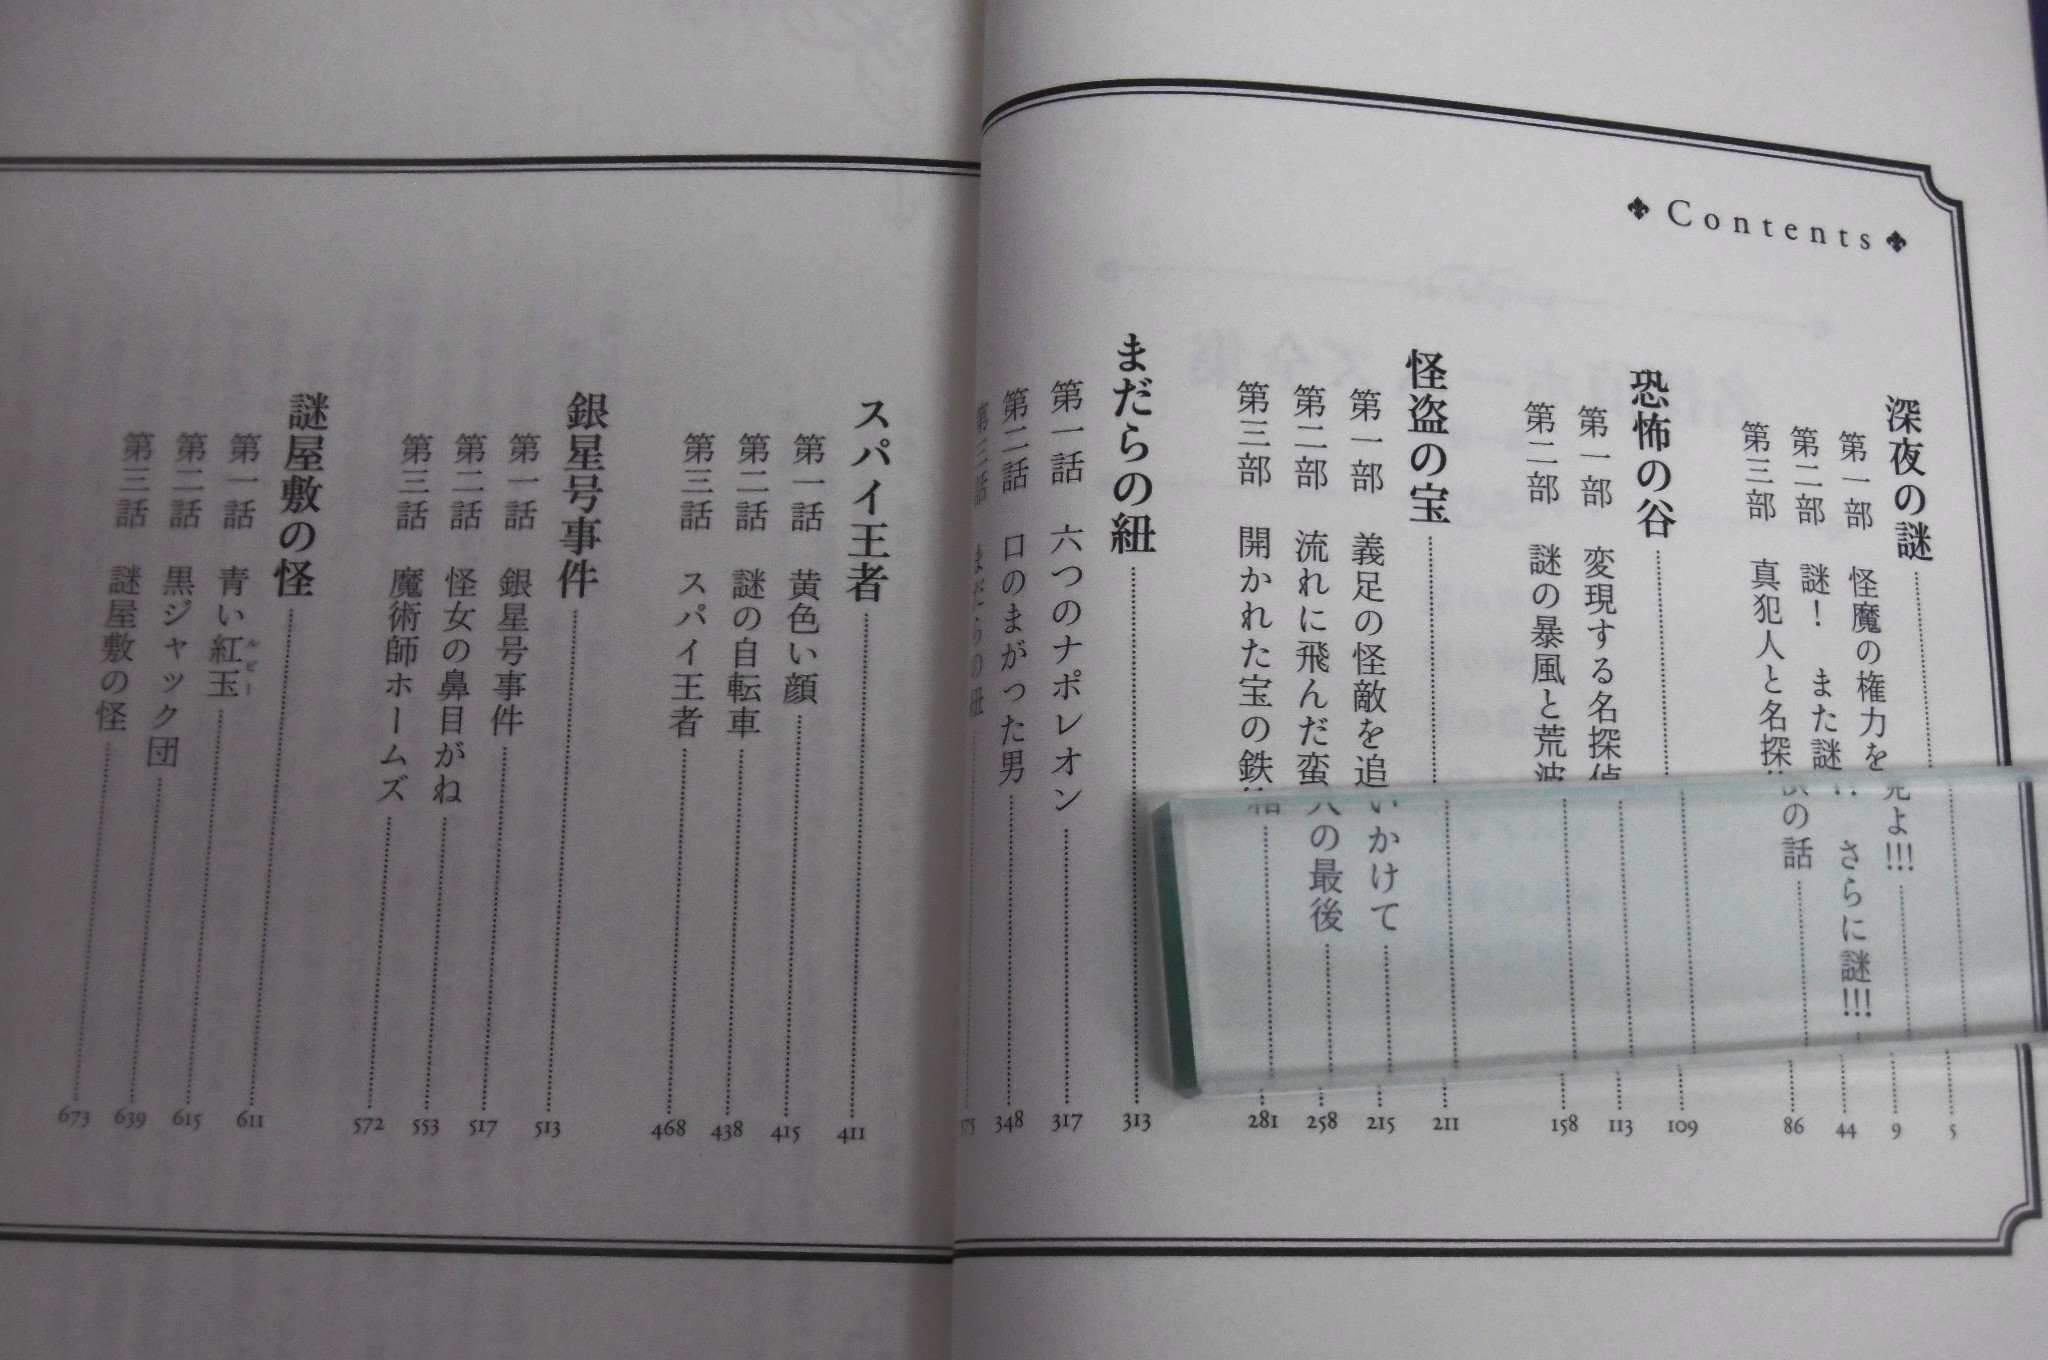 Contents
深夜の謎 5
第一部 怪魔の権力を見よ!!! 9
第二部 謎! また謎!! さらに謎!!! 44
第三部 真犯人と名探偵の話 86
恐怖の谷 109
第一部 変現する名探偵 113
第二部 謎の暴風と荒波 158
怪盗の宝 211
第一部 義足の怪敵を追いかけて 215
第二部 流れに飛んだ蛮人の最後 258
第三部 開かれた宝の鉄箱 281
まだらの紐 313
第一話 六つのナポレオン 317
第二話 口のまがった男 348
第三話 まだらの紐 375
スパイ王者 411
第一話 黄色い顔 415
第二話 謎の自転車 438
第三話 スパイ王者 468
銀星号事件 513
第一話 銀星号事件 517
第二話 怪女の鼻目がね 553
第三話 魔術師ホームズ 572
謎屋敷の怪 611
第一話 青い紅玉 ルビー 615
第二話 黒ジャック団 639
第三話 謎屋敷の怪 673